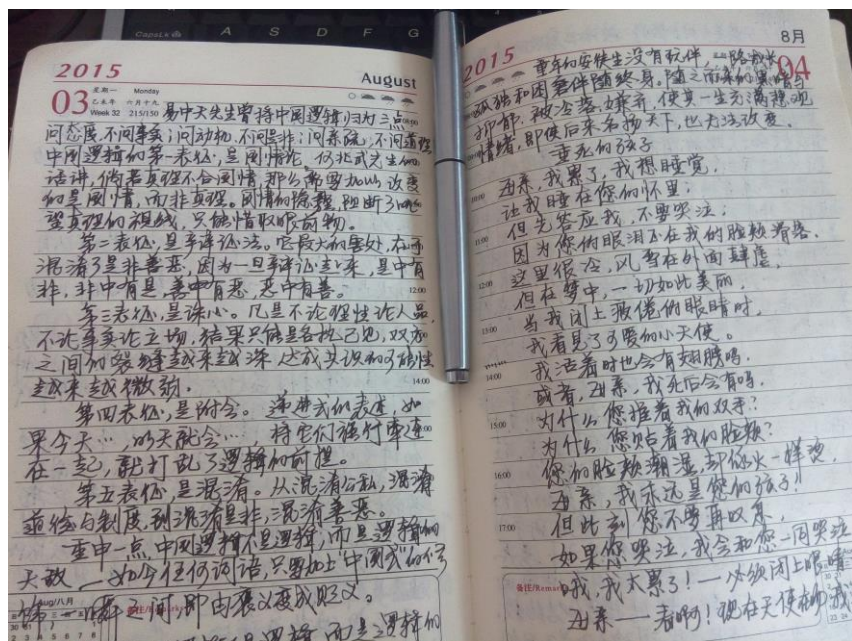 CapsLk A S D F G
2015
August
03
星期一 Monday
乙未年 六月十九
Week 32 215/150
易中天先生曾将中国逻辑归为三点
问态度,不问事实;问动机,不问是非;问亲疏,不问道理
中国逻辑的第一表征,是国情论。何兆武先生的
话讲,倘若真理不合国情,那么需要加以改变
的是国情,而非真理。国情的拖,阻断了
望真理的视线,只能借取眼前物。
第二表征,是辩证法。它最大的害处,在于
混淆了是非善恶,因为一旦辩证起来,是中有
非,非中有是,善中有恶,恶中有善。
第三表征,是诛心。凡是不论理性论人品,
不论事实论立场,结果只能是各执己见,双方
之间的裂缝越来越深,达成共识的可能性
越来越微弱。
第四表征,是附会。递进式的表述,如
果今天…,明天就会…,将它们强行牵连
在一起,就打乱了逻辑的前提。
第五表征,是混淆。从混淆公私,混淆
道德与制度,到混淆是非,混淆善恶。
重申一点,中国逻辑不是逻辑,而是逻辑的
天敌——如今任何词语,只要加上“中国式”的
瞬之间,即由褒义变成贬义。
逻辑,而是逻辑的
2015
8月
04
童年的安徒生没有玩伴,一路成长
孤独和困窘伴随终身。随之而来的
抑郁,被冷落、嫌弃,使其一生充满悲观
情绪,即使后来名扬天下,也无法改变。
垂死的孩子
母亲,我累了,我想睡觉,
让我睡在您的怀里;
但先答应我,不要哭泣;
因为您的眼泪正在我的脸颊滑落。
这里很冷,风雪在外面肆虐,
但在梦中,一切如此美丽,
当我闭上疲倦的眼睛时,
我看见了可爱的小天使。
我活着时也会有翅膀吗,
或者,母亲,我死后会有吗,
为什么您握着我的双手?
为什么您贴着我的脸颊?
您的脸颊潮湿,却像火一样烫,
母亲,我永远是您的孩子!
但此刻您不要再叹息,
如果您哭泣,我会和您一同哭泣
哦,我太累了!—必须闭上眼睛
母亲——看啊!现在天使在吻我